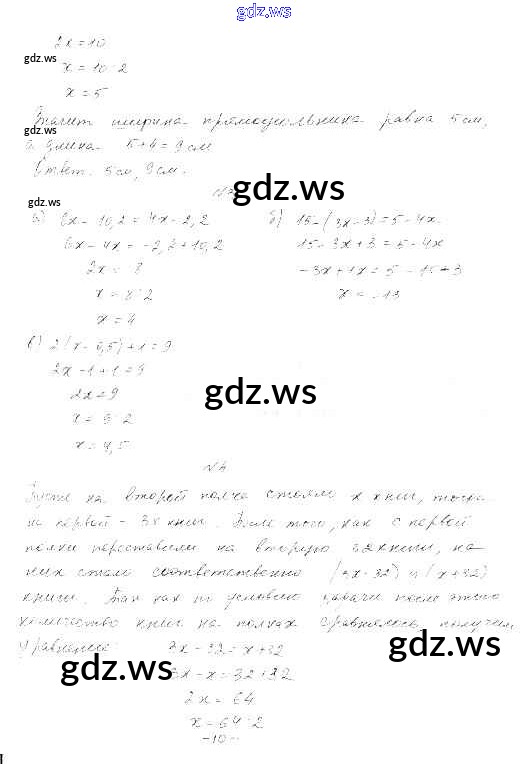 gdz.ws
2x = 10
gdz.ws
x = 10 : 2
x = 5
Значит ширина прямоугольника равна 5 см,
gdz.ws
а длина 5 + 4 = 9 см
Ответ: 5 см, 9 см.
gdz.ws
gdz.ws
а) 6x - 10,2 = 4x - 2,2 б) 15 - (3x - 3) = 5 - 4x
6x - 4x = -2,2 + 10,2 15 - 3x + 3 = 5 - 4x
2x = 8 -3x + 4x = 5 - 15 + 3
x = 8 : 2 x = -13
x = 4
в) 2(x - 0,5) + 1 = 9
2x - 1 + 1 = 9
2x = 9
gdz.ws
x = 9 : 2
x = 4,5
№4
Пусть на второй полке стояло x книг, тогда
на первой - 3x книг. После того, как с первой
полки переставили на вторую 32 книги, на
них стало соответственно (3x - 32) и (x + 32)
книги. Так как по условию задачи после этого
количество книг на полках сравнялось, получим
gdz.ws
уравнение: 3x - 32 = x + 32
gdz.ws
3x - x = 32 + 32
2x = 64
x = 64 : 2
-10-